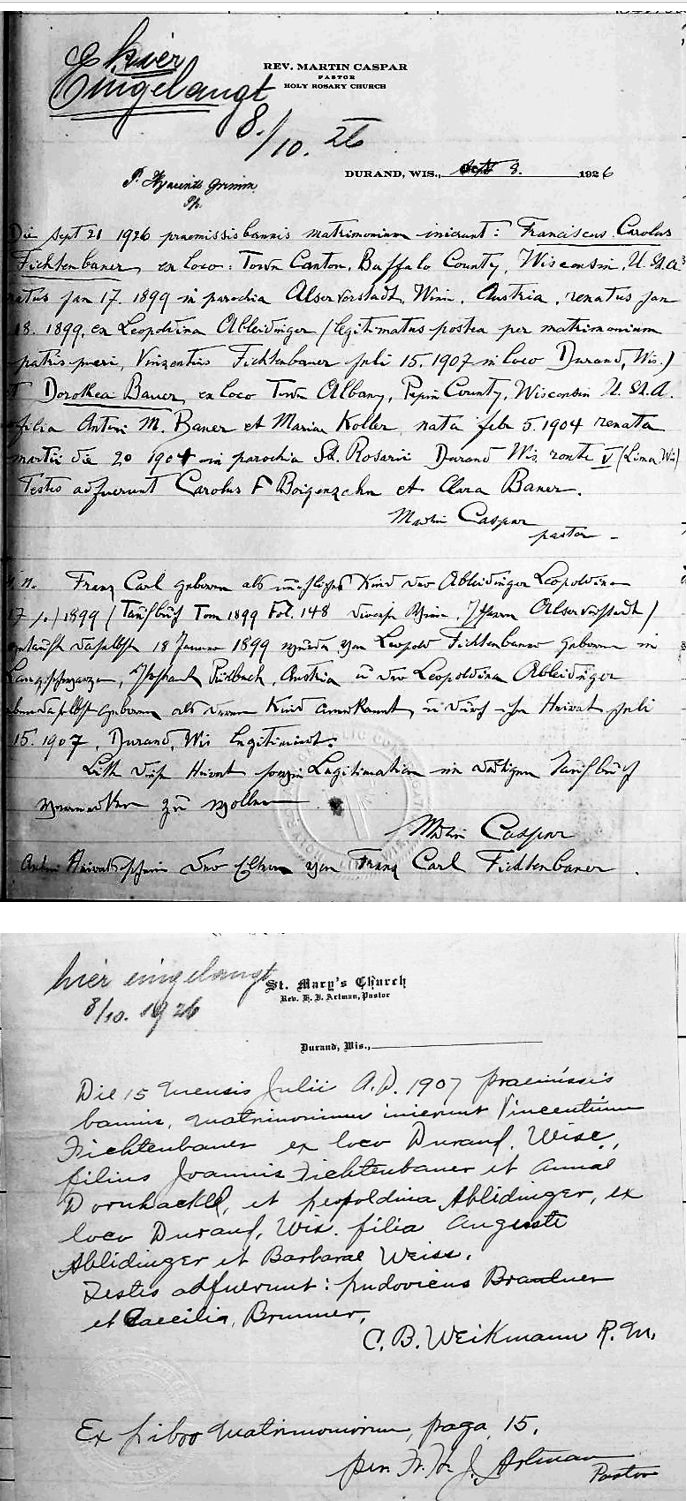 hier
Eingelangt
8./10. 26
REV. MARTIN CASPAR
PASTOR
HOLY ROSARY CHURCH
DURAND, WIS., 8. 1926
P. Hyacinth Grimm
Die Sept 21 1926 praemissis bannis matrimonium inierunt: Franciscus Carolus
Fichtenbauer, ex loco: Town Canton, Buffalo County, Wisconsin, U.St.A.
natus Jan 17. 1899 in parochia Alservorstadt, Wien, Austria, renatus Jan
18. 1899, ex Leopoldina Ableidinger (legitimatus postea per matrimonium
patris pueri, Vinzentius Fichtenbauer Juli 15. 1907 in loco Durand, Wis.)
et Dorothea Bauer, ex loco Town Albany, Pepin County, Wisconsin U.St.A.
filia Antoni M. Bauer et Mariae Koller, nata febr 5. 1904 renata
martii die 20 1904 in parochia St. Rosarii Durand Wis, route V (Lima, Wis)
Testes adfuerunt Carolus F Boigenzahn et Clara Bauer.
Martin Caspar
pastor
Franz Carl geboren als uneheliches Kind der Ableidinger Leopoldine
17/1/1899 (Taufbuch Tom 1899 Fol. 148 Wien, Pfarre Alservorstadt)
getauft daselbst 18 Januar 1899 wurde von Fichtenbauer geboren in
Langschwarza, Austria u der Leopoldina Ableidinger
ebendaselbst geboren als deren Kind anerkannt, u durch ihre Heirat Juli
15. 1907, Durand, Wis legitimiert.
Bitte diese Heirat sowie Legitimation im dortigen Taufbuch
vormerken zu wollen
Martin Caspar
Heiratsschein der Eltern von Franz Carl Fichtenbauer.
hier eingelangt
8/10. 1926
St. Mary's Church
Rev. H. J. Artman, Pastor
Durand, Wis.,
Die 15 mensis Julii A.D. 1907 praemissis
bannis, matrimonium inierunt Vincentium
Fichtenbauer ex loco Durand, Wisc,
filius Joannis Fichtenbauer et Annae
Dornhackl, et Leopoldina Ablidinger, ex
loco Durand, Wis. filia Auguste
Ablidinger et Barbarae Weiss.
Testes adfuerunt: Ludovicus Brandner
et Caecilia, Brunner,
C. B. Weikmann R.M.
Ex Libro Matrimoniorum, paga 15.
per H. J. Artman
Pastor